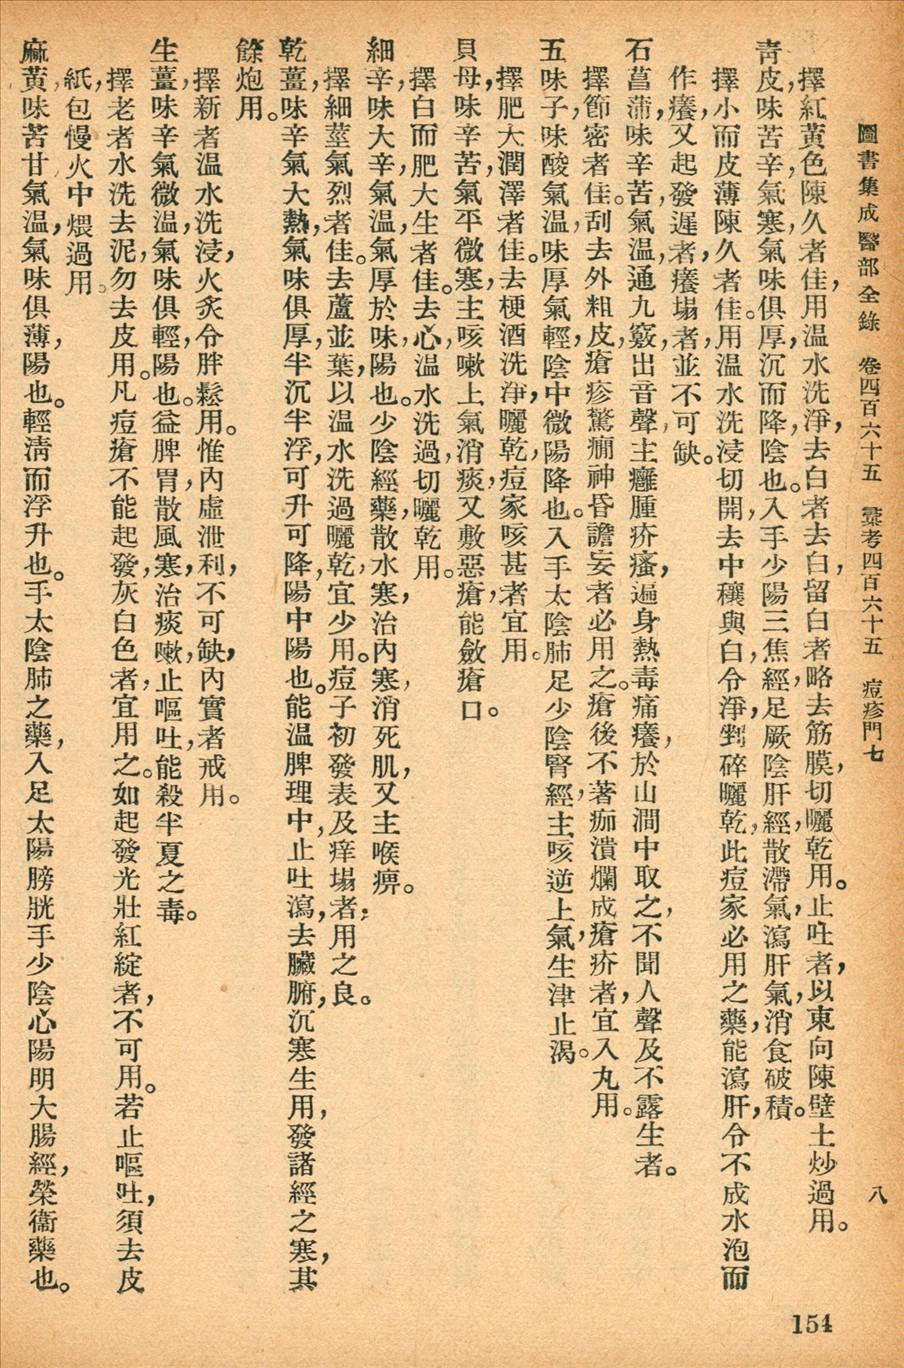 圖書集成醫部全錄　卷四百六十五　彙考四百六十五　痘疹門七　八
擇紅黃色陳久者佳，用溫水洗淨，去白者去白，留白者略去筋膜，切曬乾用。止吐者，以東向陳壁土炒過用。
青皮，味苦辛，氣寒，氣味俱厚，沉而降，陰也。入手少陽三焦經，足厥陰肝經，散滯氣，瀉肝氣，消食破積。
擇小而皮薄陳久者佳。用溫水洗浸切開，去中穰與白，令淨，剉碎曬乾，此痘家必用之藥，能瀉肝，令不成水泡而
作癢，又起發遲者，癢塌者，並不可缺。
石菖蒲，味辛苦，氣溫，通九竅，出音聲，主癰腫疥瘙，遍身熱毒痛癢，於山澗中取之，不聞人聲及不露生者。
擇節密者佳。刮去外粗皮，瘡疹驚癇神昏譫妄者必用之。瘡後不著痂潰爛成瘡疥者，宜入丸用。
五味子，味酸，氣溫，味厚氣輕，陰中微陽，降也。入手太陰肺足少陰腎經，主咳逆上氣，生津止渴。
擇肥大潤澤者佳。去梗酒洗淨，曬乾，痘家咳甚者宜用。
貝母，味辛苦，氣平微寒，主咳嗽上氣，消痰，又敷惡瘡，能斂瘡口。
擇白而肥大生者佳。去心，溫水洗過，切曬乾用。
細辛，味大辛，氣溫，氣厚於味，陽也。少陰經藥，散水寒，治內寒，消死肌，又主喉痹。
擇細莖氣烈者佳。去蘆並葉，以溫水洗過曬乾，宜少用。痘子初發表及痒塌者，用之良。
乾薑，味辛，氣大熱，氣味俱厚，半沉半浮，可升可降，陽中陽也。能溫脾理中，止吐瀉，去臟腑，沉寒生用，發諸經之寒，其
餘炮用。
擇新者溫水洗浸，火炙令胖鬆用。惟內虛泄利，不可缺，內實者戒用。
生薑，味辛氣微溫，氣味俱輕，陽也。益脾胃，散風寒，治痰嗽，止嘔吐，能殺半夏之毒。
擇老者水洗去泥，勿去皮用。凡痘瘡不能起發，灰白色者，宜用之。如起發光壯紅綻者，不可用。若止嘔吐，須去皮
紙包慢火中煨過用。
麻黃，味苦甘，氣溫，氣味俱薄，陽也。輕清而浮升也。手太陰肺之藥，入足太陽膀胱手少陰心陽明大腸經，榮衞藥也。
154